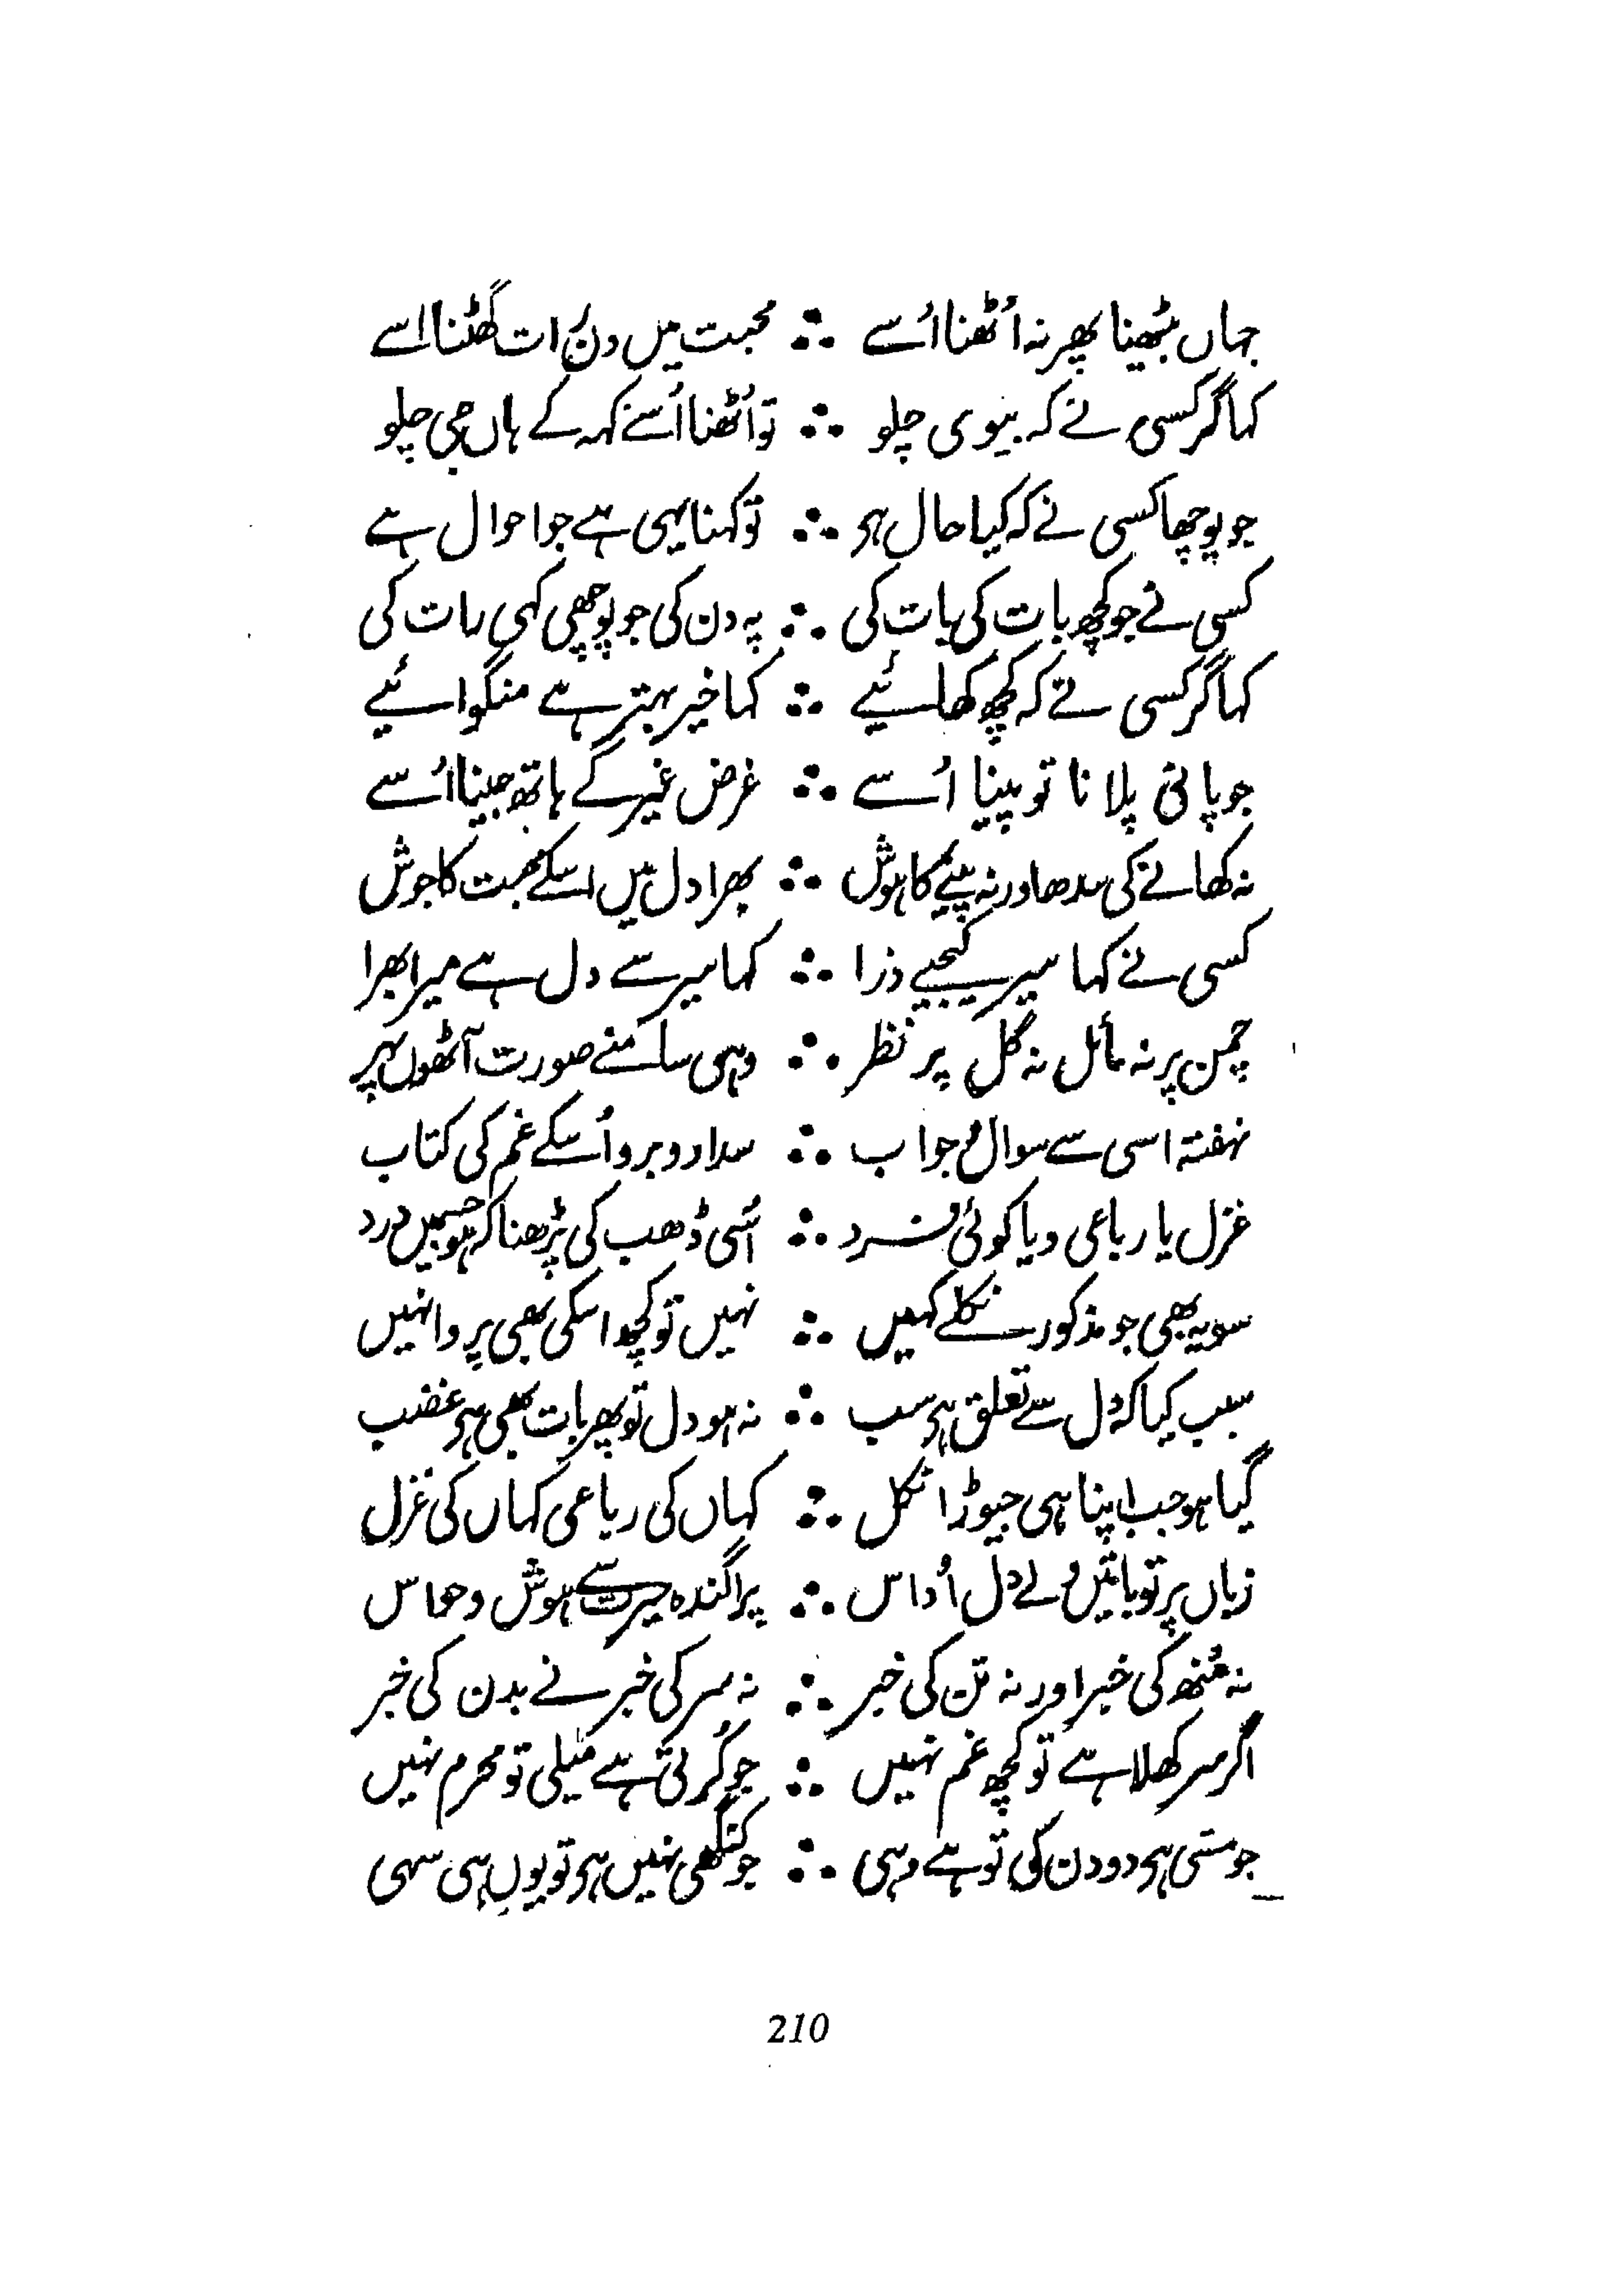 جہاں بیٹھنا پھر نہ اُٹھنا اُسے ∴ محبت میں دن رات گھٹنا اسے
کہا گر کسی نے کہ بیوی چلو ∴ تو اُٹھنا اُسے کہہ کے ہاں جی چلو
جو پوچھا کسی نے کہ کیا حال ہو ∴ تو کہنا یہی ہے جو احوال ہے
کسی نے جو کچھ بات کی بات کی ∴ پہ دن کی جو پوچھی کہی رات کی
کہا گر کسی نے کہ کچھ کھائیے ∴ کہا خیر بہتر ہے منگوائیے
جو پانی پلانا تو پینا اُسے ∴ غرض غیر کے ہاتھ جینا اُسے
نہ کھانے کی سدھ اور نہ پینے کا ہوش ∴ بھرا دل میں اسکے محبت کا جوش
کسی نے کہا سیر کیجیے ذرا ∴ کہا سیر سے دل ہے میرا بھرا
چمن پر نہ مائل نہ گل پر نظر ∴ وہی سامنے صورت آٹھوں پہر
نہفتہ اسی سے سوال و جواب ∴ سدا روبرو اُسکے غم کی کتاب
غزل یا رباعی و یا کوئی فرد ∴ اُسی ڈھب کی پڑھنا کہ ہو جسمیں درد
سو یہ بھی جو مذکور نکلے کہیں ∴ نہیں تو کچھ اسکی بھی پروا نہیں
سبب کیا کہ دل سے تعلق ہی سب ∴ نہ ہو دل تو پھر بات بھی ہی غضب
گیا ہو جب اپنا ہی جیوڑا نکل ∴ کہاں کی رباعی کہاں کی غزل
زباں پر تو باتیں ولے دل اُداس ∴ پراگندہ حیرت سے ہوش و حواس
نہ مُنھ کی خبر اور نہ تن کی خبر ∴ نہ سر کی خبر نے بدن کی خبر
اگر سر کھلا ہے تو کچھ غم نہیں ∴ جو کُرتی ہے میلی تو محرم نہیں
جو مسّی ہی دو دن کی تو ہے وہی ∴ جو کنگھی نہیں ہی تو یوں ہی سہی
210